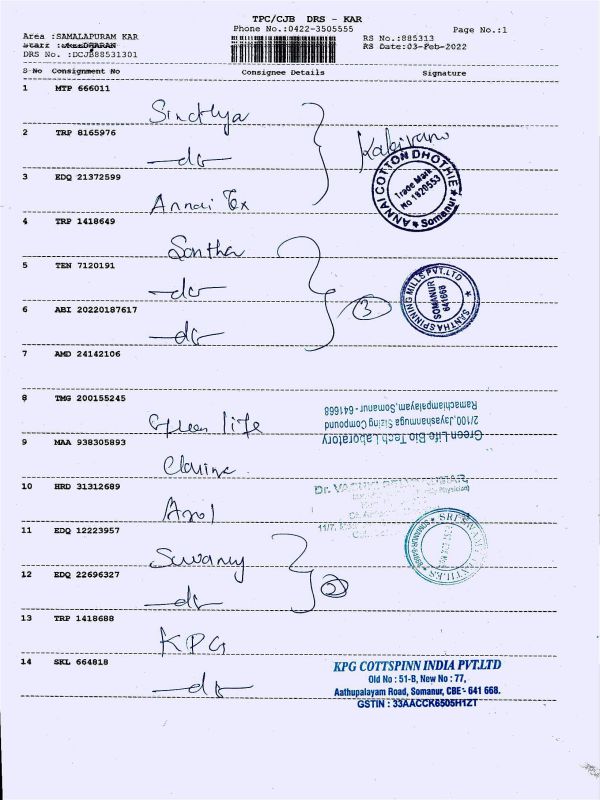 TPC/CJB DRS - KAR
Phone No.:0422-3505555
Page No.:1
Area :SAMALAPURAM KAR
RS No.:885313
RS Date:03-Feb-2022
DRS No. :DCJB88531301
S-No Consignment No Consignee Details Signature
1 MTP 666011
2 TRP 8165976
-do-
3 EDQ 21372599
Annai Tex
ANNAI COTTON DHOTHIE
Trade Mark
No 1920553
Somanur
4 TRP 1418649
Santha
5 TEN 7120191
-do-
SANTHA SPINNING MILLS PVT.LTD
SOMANUR
641668
3
6 ABI 20220187617
-do-
7 AMD 24142106
8 TMG 200155245
Green life
Green Life Bio Tech Laboratory
2/100, Jayashannuga Sizing Compound
Ramachiampalayam, Somanur - 641668
9 MAA 938305893
10 HRD 31312689
Dr.
11 EDQ 12223957
12 EDQ 22696327
-do-
2
13 TRP 1418688
KPG
14 SKL 664818
-do-
KPG COTTSPINN INDIA PVT.LTD
Old No : 51-B, New No : 77,
Aathupalayam Road, Somanur, CBE - 641 668.
GSTIN : 33AACCK6505H1ZT